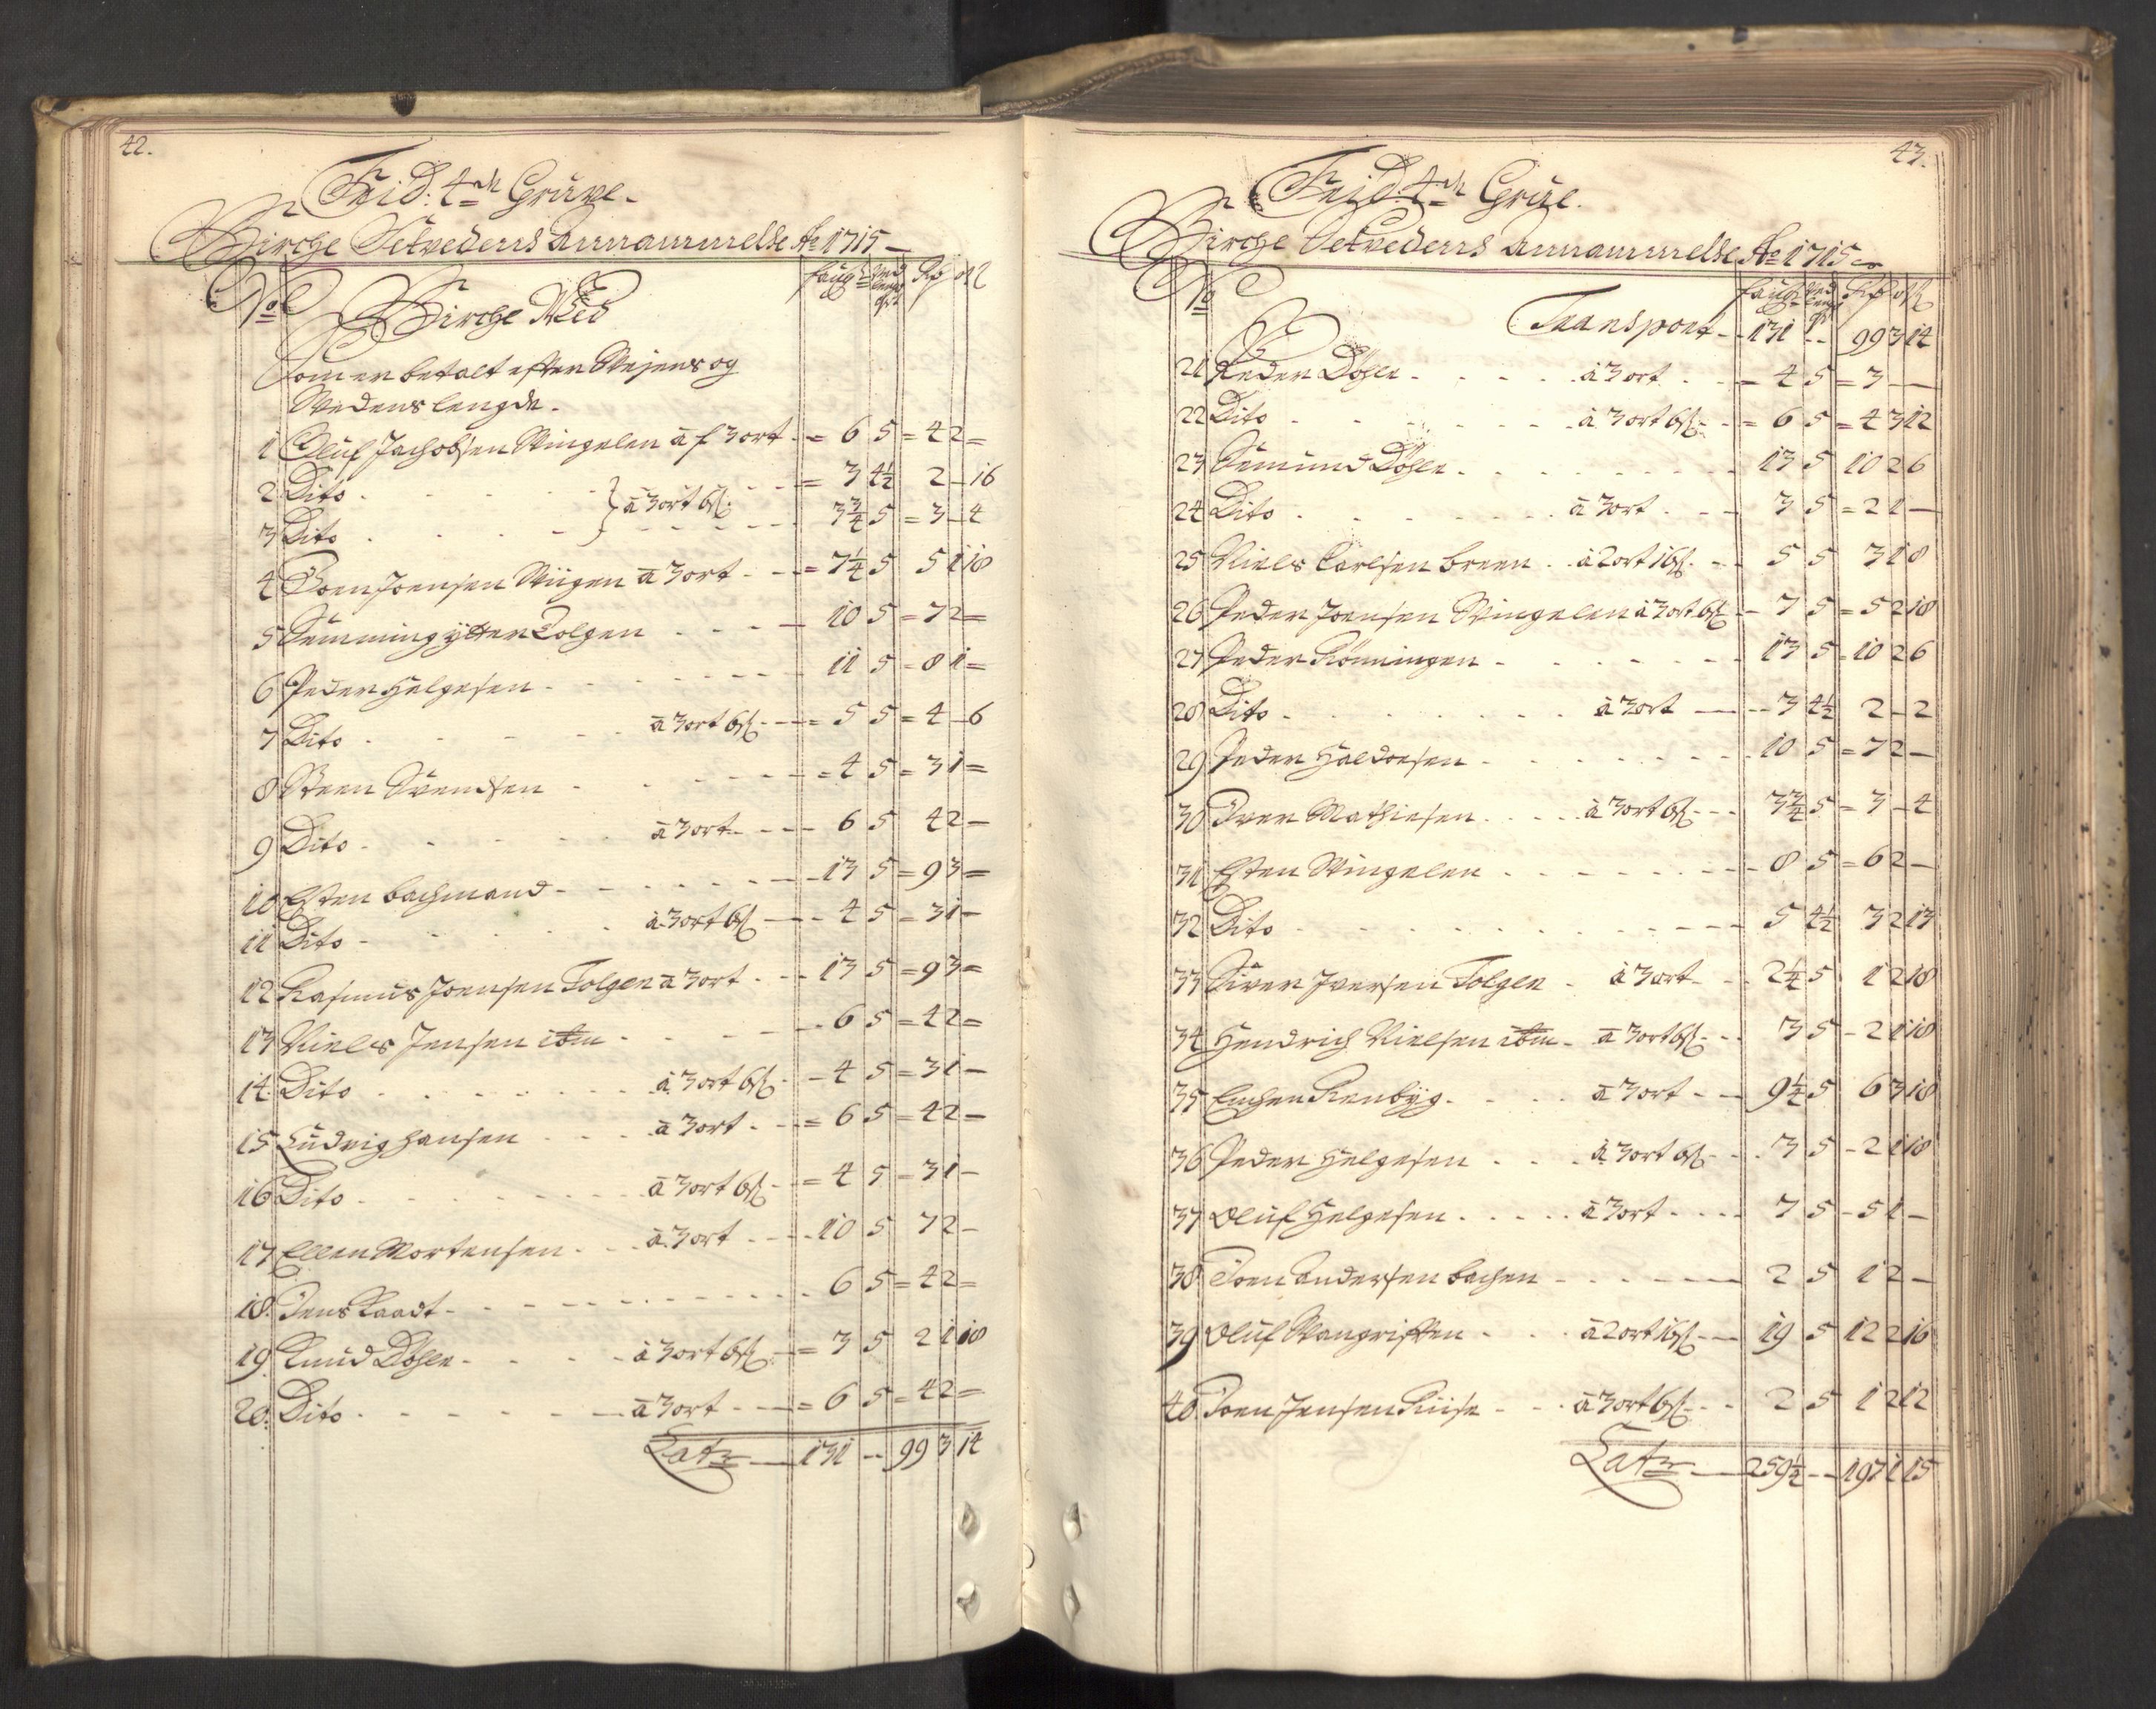 42.
Frid: 4de Gruve.
Birche Setvedens Annammelse Ao 1715
No
Birche Wed
faug: wed lengd qrt Rd ort ß
Som er betalt efter Vejens og
Vedens lengde.
1 Oluf Jachobsen Vingelen à f 3 ort = 6 5 = 4 2 =
2 Dito } à 3 ort 6ß = 3 4½ 2 – 16
3 Dito 3¾ 5 = 3 – 4
4 Joen Joensen Viigen à 3 ort = 7¼ 5 5 1 18
5 Semming ytter Tolgen 10 5 = 7 2 =
6 Peder Helgesen 11 5 = 8 1 =
7 Dito à 3 ort 6ß = 5 5 = 4 – 6
8 Steen Svendsen = 4 5 = 3 1 =
9 Dito à 3 ort 6 5 4 2 –
10 Esten bachmand 13 5 = 9 3 =
11 Dito à 3 ort 6ß 4 5 = 3 1 –
12 Rasmus Joensen Tolgen à 3 ort 13 5 = 9 3 =
13 Niels Jensen ibm 6 5 = 4 2 =
14 Dito à 3 ort 6ß 4 5 = 3 1 –
15 Ludvig hansen à 3 ort = 6 5 = 4 2 –
16 Dito à 3 ort 6ß = 4 5 = 3 1 –
17 Ellen Mortensen à 3 ort 10 5 7 2 –
18. Jens Kaadt 6 5 = 4 2 =
19. Knud Døhlen à 3 ort 6ß = 3 5 2 1 18
20. Dito à 3 ort = 6 5 = 4 2 =
Latr 131 -- 99 3 14
43.
Frid: 4de Gruve.
Birche Setvedens Annammelse Ao 1715
No
faug: wed lengd qrt Rd ort ß
Transport 131 -- 99 3 14
21 Peder Døhlen à 3 ort = 4 5 = 3 –
22 Dito à 3 ort 6ß = 6 5 = 4 3 12
23 Semund Døhlen 13 5 10 2 6
24 Dito à 3 ort 3 5 = 2 1 –
25 Niels Carlsen breen à 2 ort 16ß 5 5 3 1 8
26 Peder Joensen Vingelen à 3 ort 6ß 7 5 = 5 2 18
27 Peder Rønningen 13 5 = 10 2 6
28 Dito à 3 ort 3 4½ 2 – 2
29 Peder Haldoesen 10 5 = 7 2 –
30 Iver Mathiesen à 3 ort 6ß 3¾ 5 = 3 – 4
31 Esten Vingelen 8 5 = 6 2 –
32 Dito 5 4½ 3 2 13
33 Siver Iversen Tolgen à 3 ort 2¼ 5 1 2 18
34 Hendrich Nielsen ibm à 3 ort 6ß 3 5 – 2 1 18
35 Enchen Renbyg à 3 ort 9¼ 5 6 3 18
36 Peder Helgesen à 3 ort 6ß 3 5 – 2 1 18
37 Oluf Helgesen à 3 ort 7 5 – 5 1 –
38 Joen Andersen bachen 2 5 1 2 –
39 Oluf Vangriften à 2 ort 16ß 19 5 12 2 16
40. Joen Jensen Riise à 3 ort 6ß 2 5 1 2 12
Latr 259½ -- 197 1 15